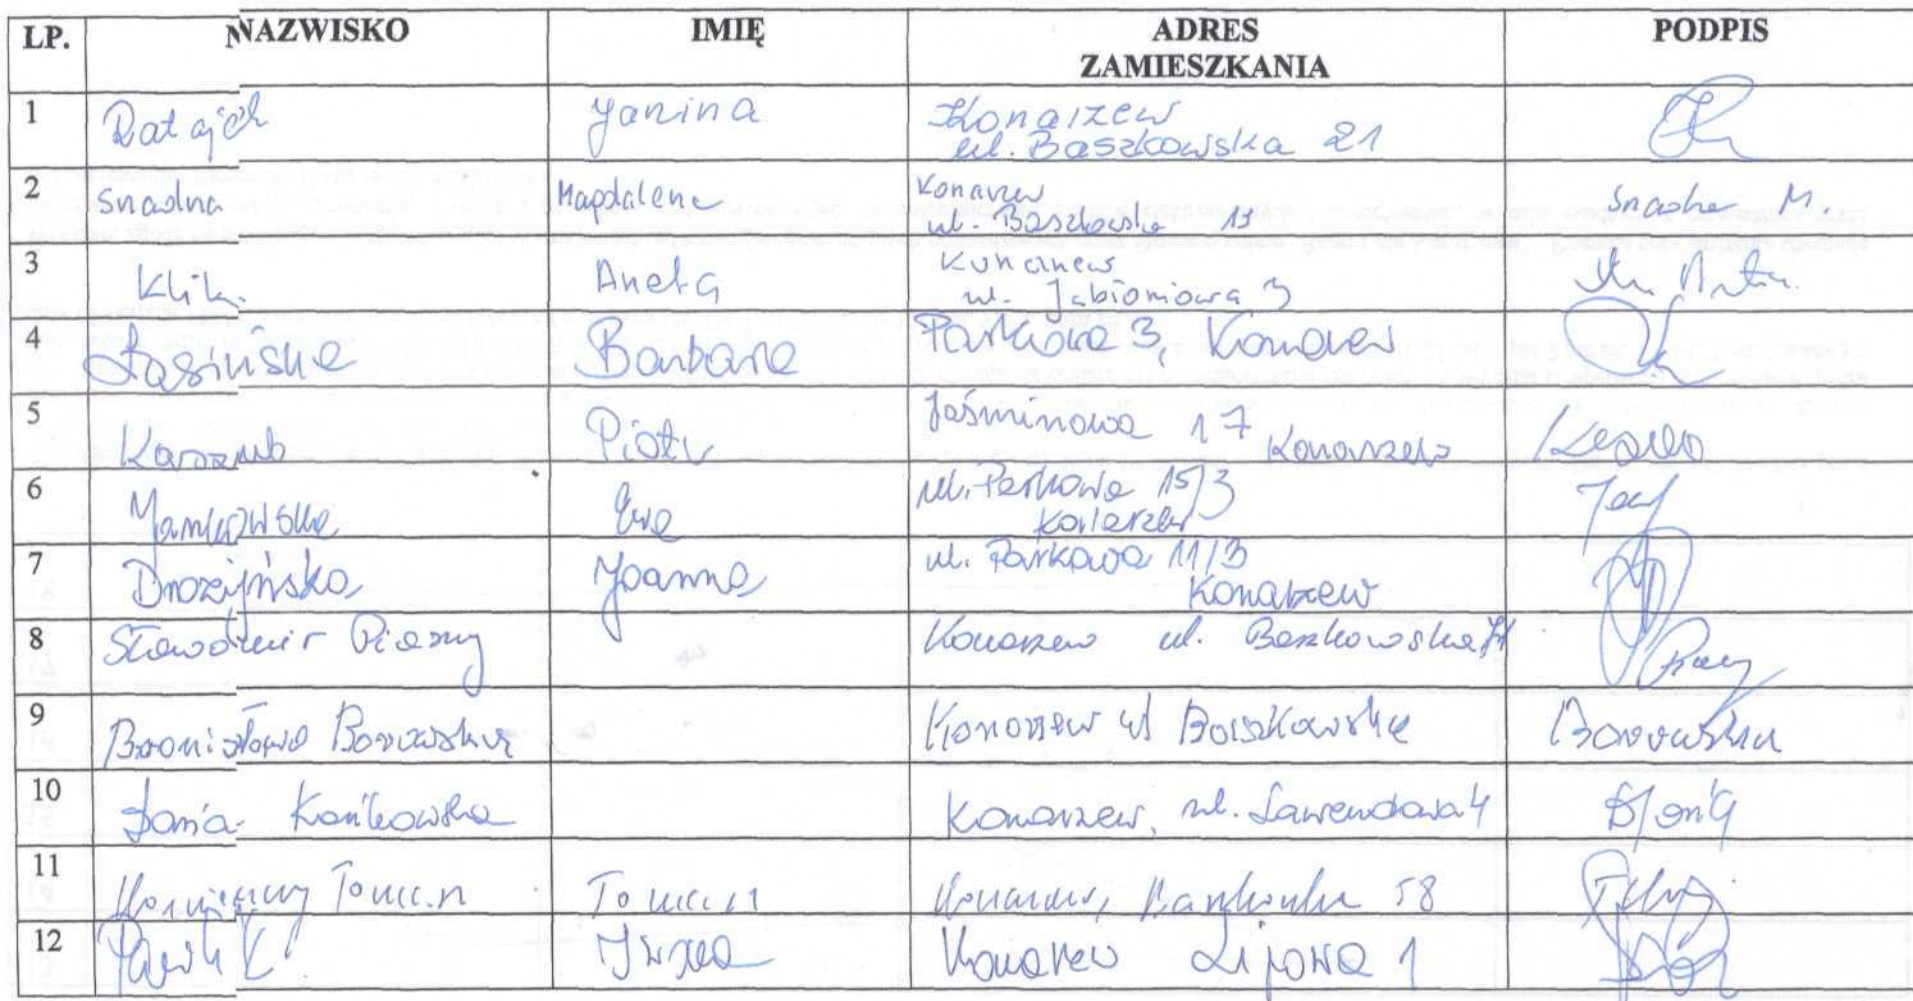 LP. NAZWISKO IMIĘ ADRES ZAMIESZKANIA PODPIS
1 Ratajch Janina Konarzew
ul. Baszkowska 21
2 Snadna Magdalena Konarzew Snadna M
ul. Baszkowska
3 Klik Aneta Konarzew
ul. Jabłoniowa 3
4 Łasińska Barbara Parkowa 3, Konarzew
5 Kaszub Piotr Jaśminowa 17 Konarzew
6 Jankowska Ewa ul. Parkowa 15/3
Konarzew
7 Drożyńska Joanna ul. Parkowa 11/3
Konarzew
8 Sławomir Konarzew ul. Baszkowska
9 Bronisława Borowska Konarzew ul Baszkowska Borowska
10 Kańkowska Konarzew, ul. Lawendowa 4
11 Tomasz Tomasz Konarzew, Baszkowska 58
12 Konarzew Lipowa 1